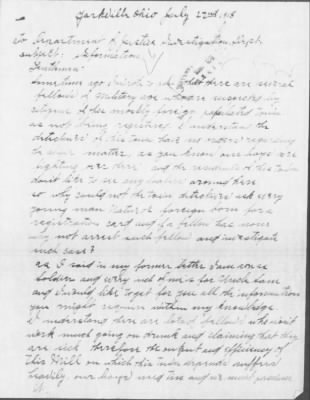 Yorkville Ohio July 22nd 1918
to Department of Justice Investigation Dept.
subject: Information
Gentlemen:
Sometime ago I wrote to you that there are several
fellows of military age
citizens of this mostly foreign populated town
as not being registered. I understand the
detectives of this town have no orders regarding
the matter, as you know our boys are
fighting over there and the residents of this town
don't like to see any slackers around there
so why could not the town detectives ask every
young man native or foreign born for a
registration card and if a fellow has none
why not arrest such fellow and investigate
such case?
as I said in my former letter I am
soldier and
and I would like to get for you all the information
you might require within my knowledge
I understand there are lots of fellows who won't
work much going on drunk and claiming that they
are sick therefore the output and efficiency of
this Mill on which this town depends suffers
heavily our boys need tin and we must produce
it